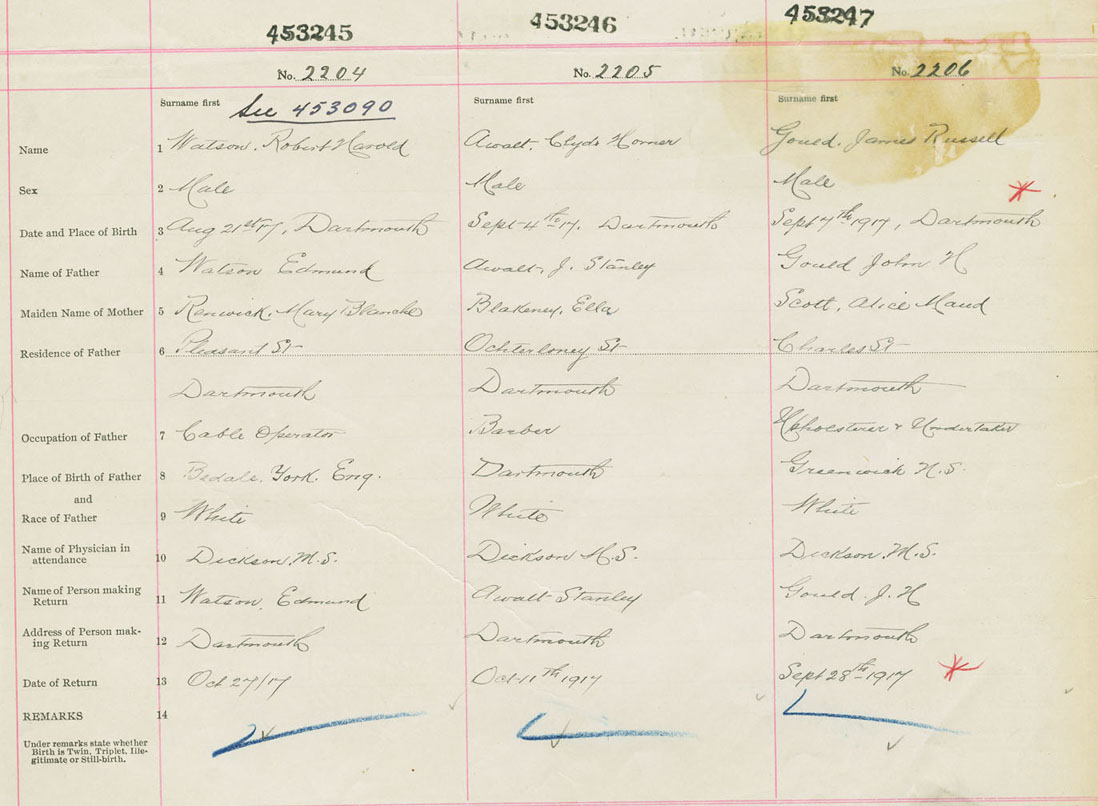 453245 453246 453247
No. 2204 No. 2205 No. 2206
Surname first See 453090 Surname first Surname first
Name 1 Watson, Robert Harold Awalt, Clyde Homer Gould, James Russell
Sex 2 Male Male Male
Date and Place of Birth 3 Aug 21st 17, Dartmouth Sept 4th 17, Dartmouth Sept 7th 1917, Dartmouth
Name of Father 4 Watson Edmund Awalt, J. Stanley Gould John H
Maiden Name of Mother 5 Renwick, Mary Blanche Blakeney, Ella Scott, Alice Maud
Residence of Father 6 Pleasant St Ochterloney St Charles St
Dartmouth Dartmouth Dartmouth
Occupation of Father 7 Cable Operator Barber Upholsterer & Undertaker
Place of Birth of Father 8 Bedale, York. Eng. Dartmouth Greenwich N.S.
and
Race of Father 9 White White White
Name of Physician in
attendance 10 Dickson, M.S. Dickson M.S. Dickson, M.S.
Name of Person making
Return 11 Watson, Edmund Awalt Stanley Gould, J. H
Address of Person mak-
ing Return 12 Dartmouth Dartmouth Dartmouth
Date of Return 13 Oct 27/17 Oct 11th 1917 Sept 28th 1917
REMARKS 14
Under remarks state whether
Birth is Twin, Triplet, Ille-
gitimate or Still-birth.